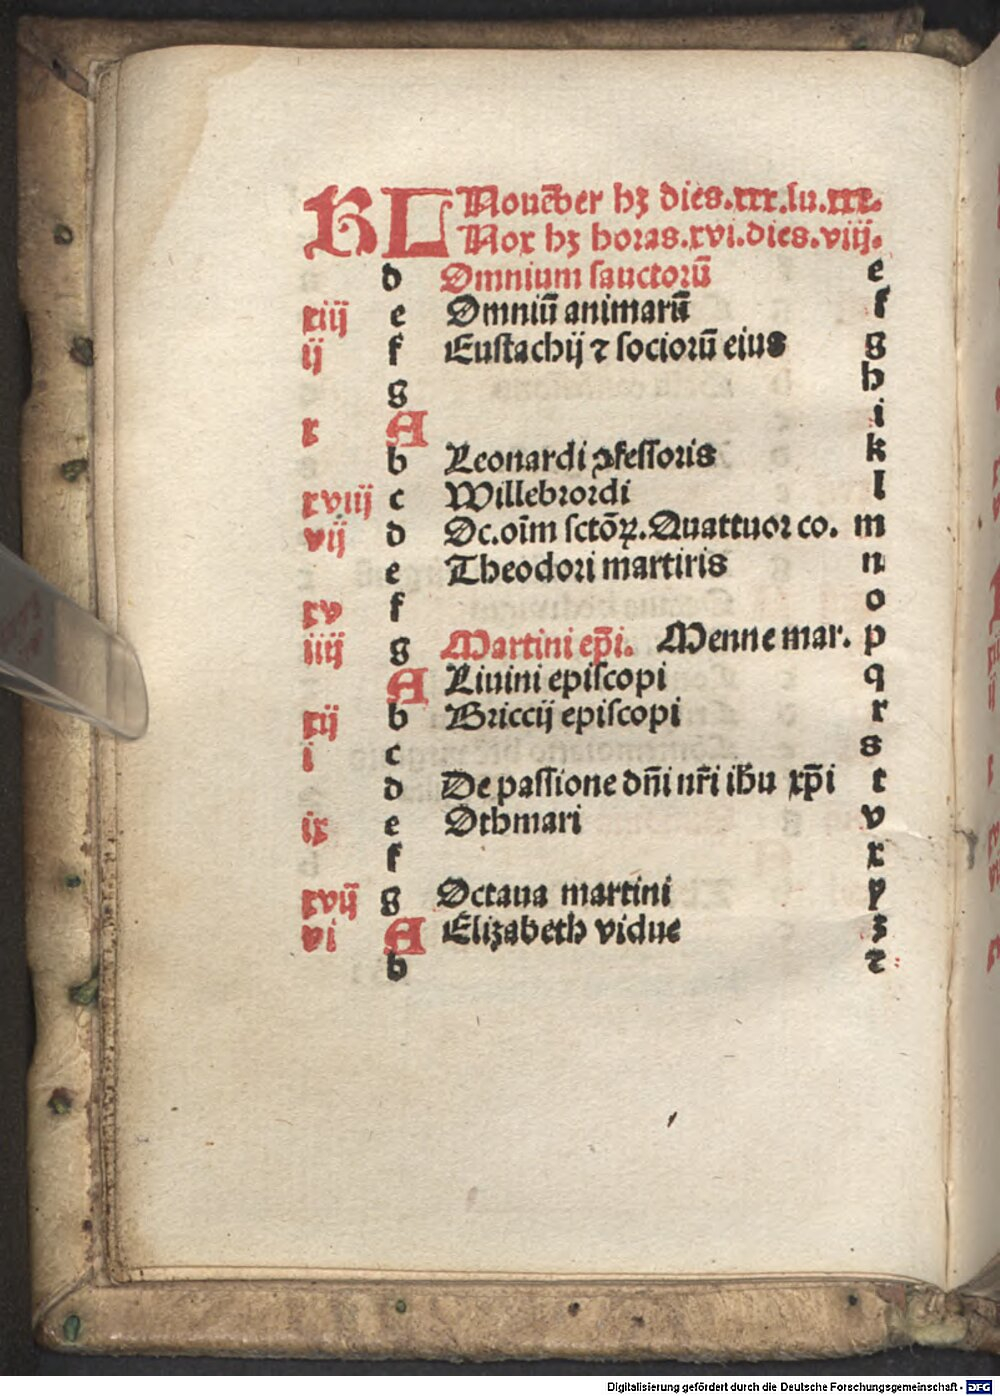 KL Nouēber hꝫ dies.xxx.lu.xxx.
Nox hꝫ horas.xvi.dies.viij.
d Omnium sauctorū e
xiij e Omniū animarū f
ij f Eustachij ⁊ sociorū eius g
g h
x A i
b Leonardi ꝯfessoris k
xviij c Willebrordi l
vij d Oc.oīm sctōꝝ.Quattuor co. m
e Theodori martiris n
xv f o
iiij g Martini ep̄i. Menne mar. p
A Liuini episcopi q
xij b Briccij episcopi r
i c s
d De passione dn̄i nr̄i ih̄u xp̄i t
ix e Othmari v
f x
xvij g Octaua martini y
vi A Elizabeth vidue z
b ⁊
Digitalisierung gefördert durch die Deutsche Forschungsgemeinschaft - DFG